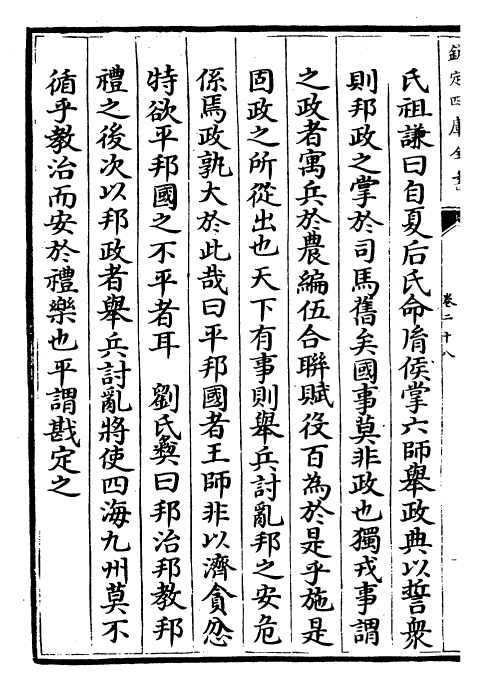 欽定四庫全書
卷二十八
氏祖謙曰自夏后氏命胤侯掌六師舉政典以誓衆
則邦政之掌於司馬舊矣國事莫非政也獨戎事謂
之政者寓兵於農編伍合聯賦役百為於是乎施是
固政之所從出也天下有事則舉兵討亂邦之安危
係焉政孰大於此哉曰平邦國者王師非以濟貪忿
特欲平邦國之不平者耳　劉氏彝曰邦治邦教邦
禮之後次以邦政者舉兵討亂將使四海九州莫不
循乎教治而安於禮樂也平謂戡定之